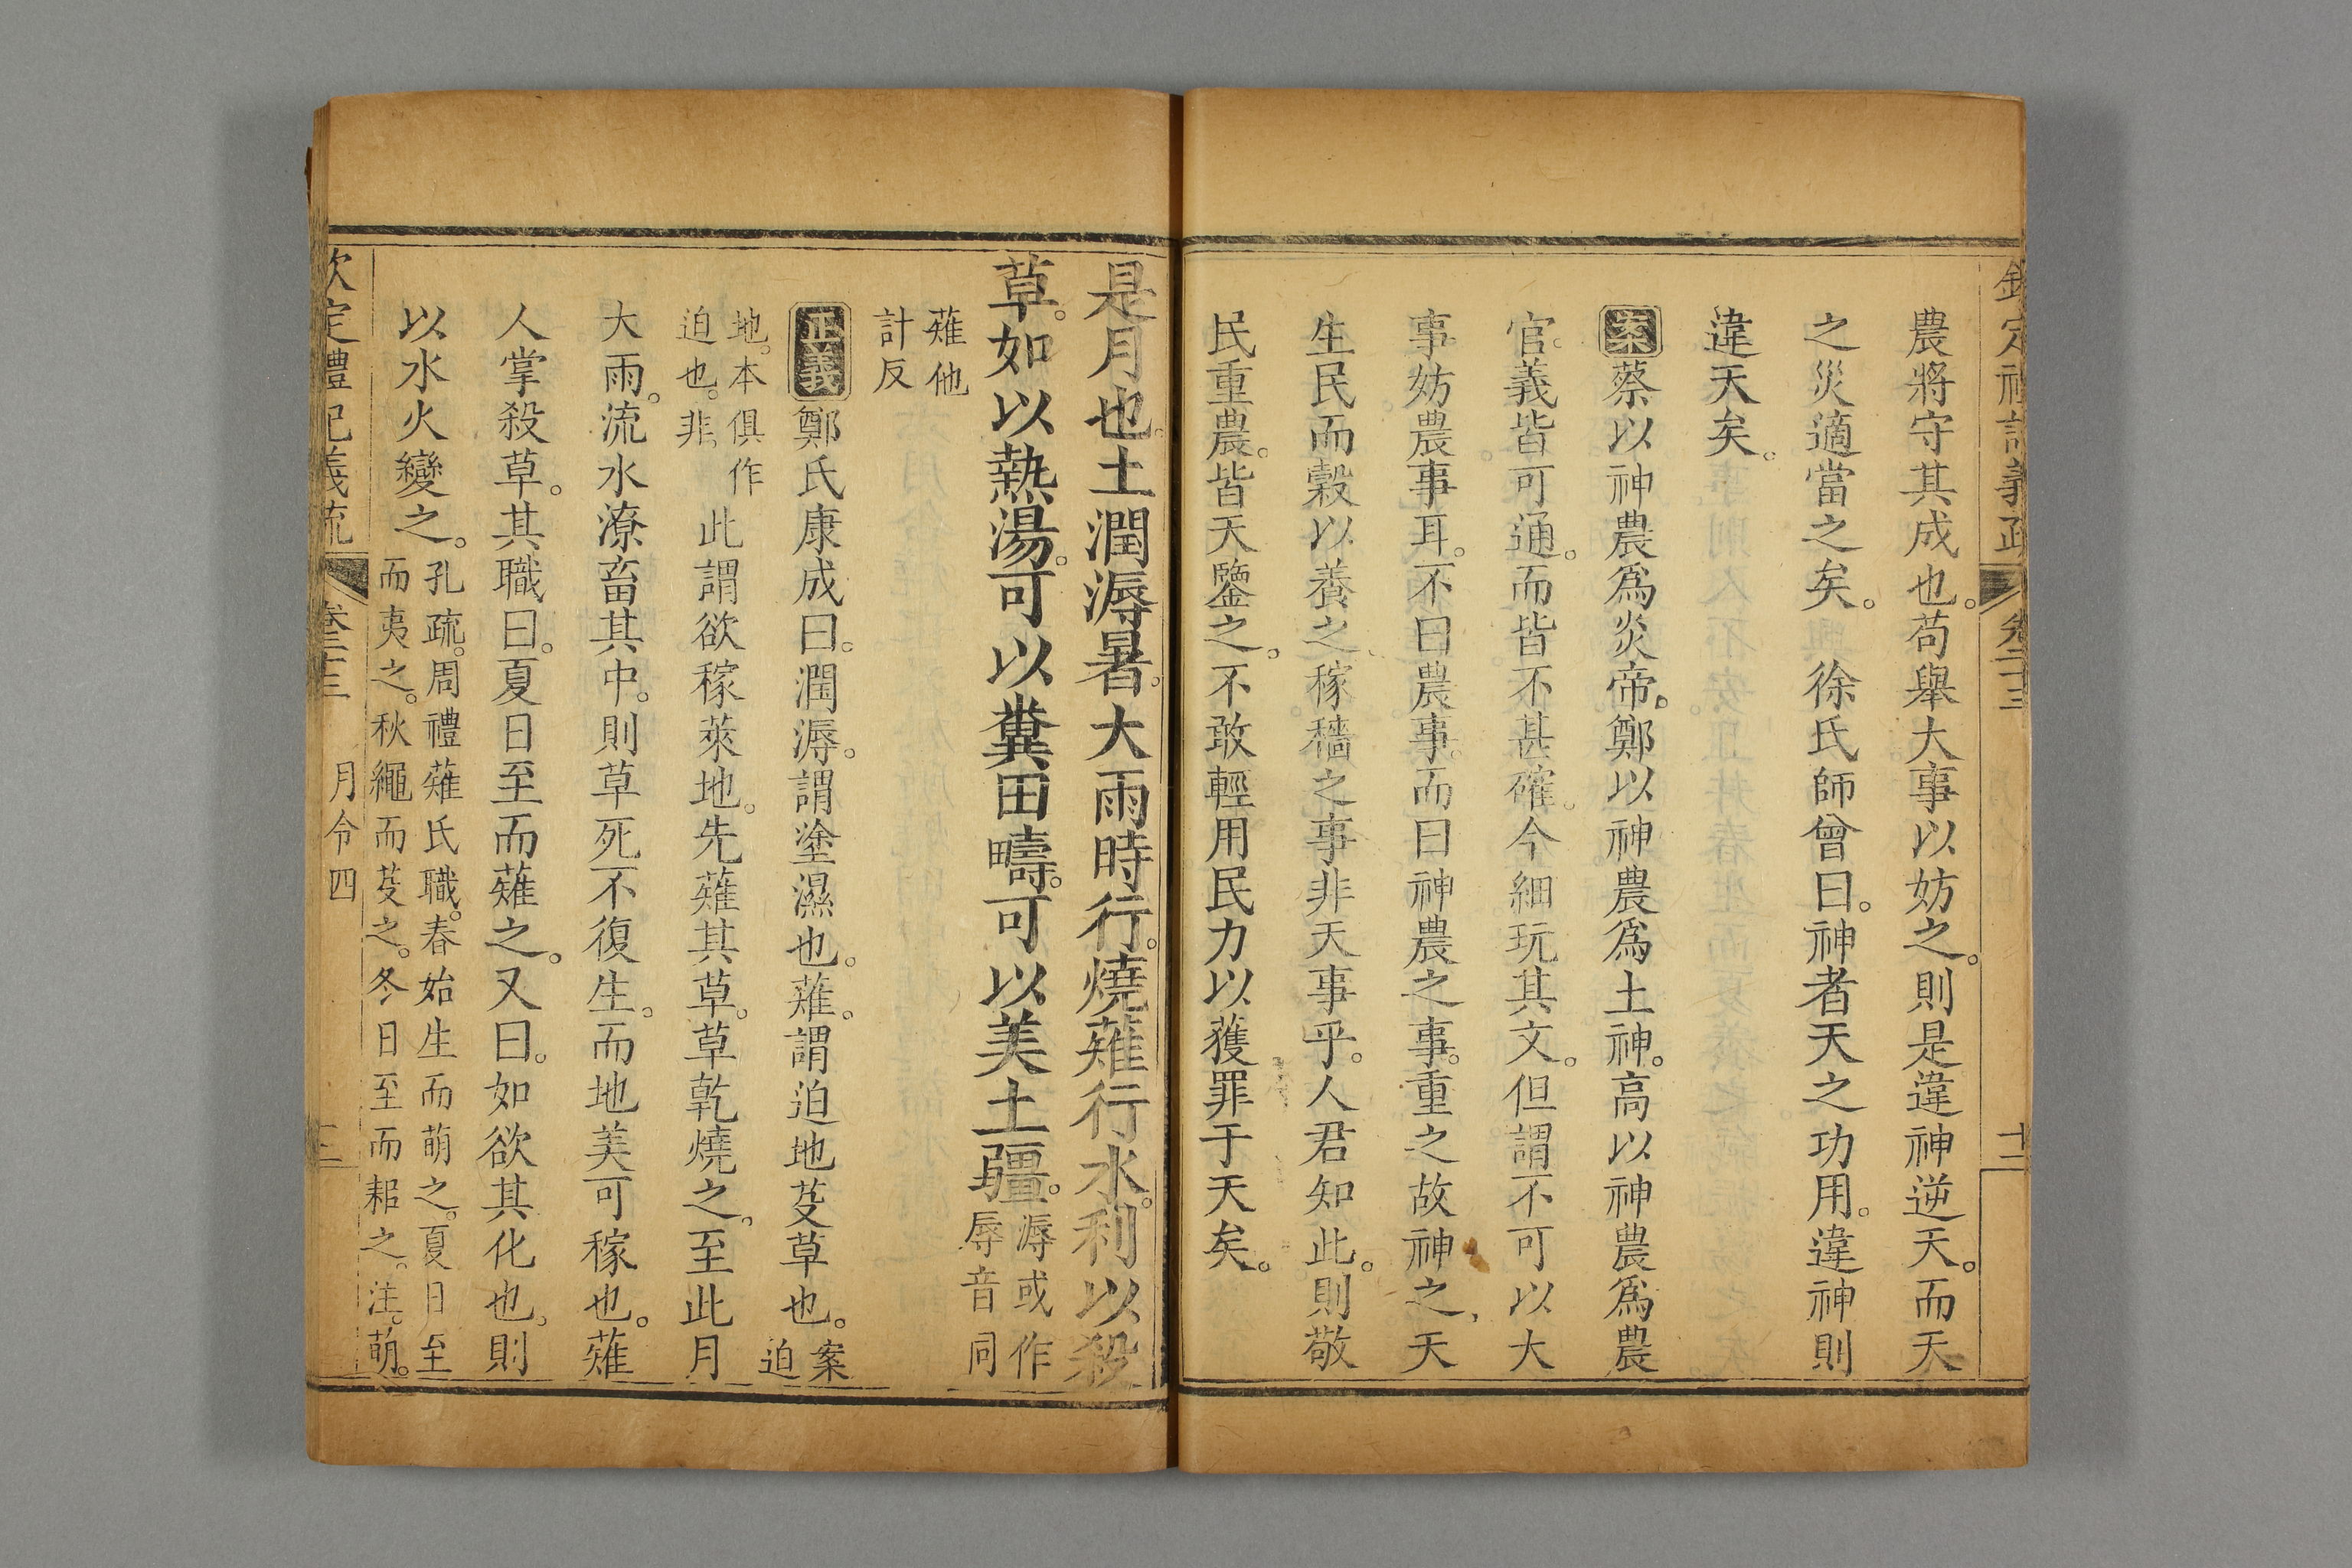 欽定禮記義疏 卷二十三 十二
農將守其成也。苟舉大事以妨之。則是違神逆天。而天
之災適當之矣。 徐氏師曾曰。神者天之功用。違神則
違天矣。
案蔡以神農爲炎帝。鄭以神農爲土神。高以神農爲農
官。義皆可通。而皆不甚確。今細玩其文。但謂不可以大
事妨農事耳。不曰農事。而曰神農之事。重之故神之、天
生民而穀以養之、稼穡之事非天事乎。人君知此。則敬
民重農。皆天鑒之。不敢輕用民力以獲罪于天矣。
是月也。土潤溽暑。大雨時行。燒薙行水。利以殺
草。如以熱湯。可以糞田疇。可以美土疆。溽或作
辱音同
薙他
計反
正義鄭氏康成曰。潤溽。謂塗濕也。薙。謂迫地芟草也。案
迫
地。本俱作
迫也。非。
此謂欲稼萊地。先薙其草。草乾燒之。至此月
大雨。流水潦畜其中。則草死不復生。而地美可稼也。薙
人掌殺草。其職曰。夏日至而薙之。又曰。如欲其化也。則
以水火變之。孔疏。周禮薙氏職。春始生而萌之。夏日至
而夷之。秋繩而芟之。冬日至而耜之。注。萌。
欽定禮記義疏 卷二十三 月令四